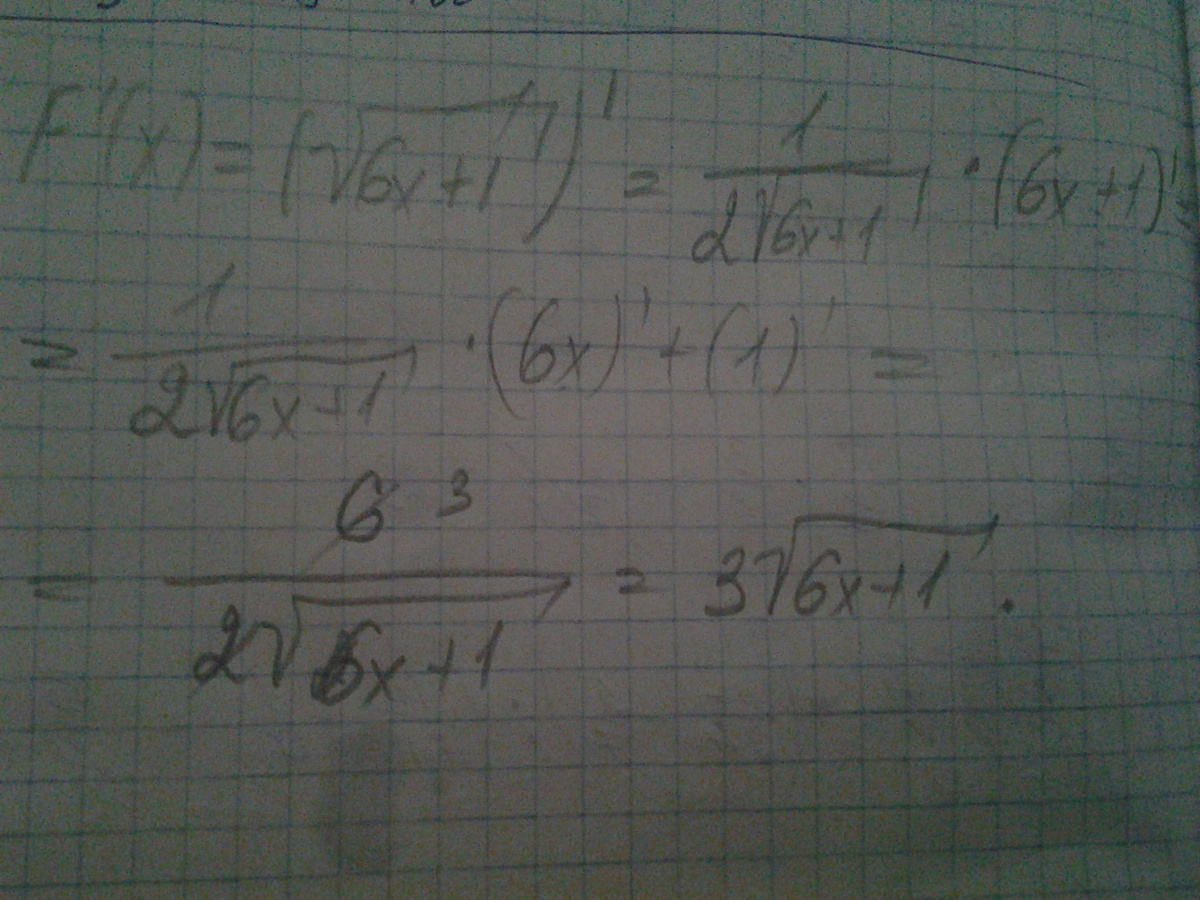 F'(x) = (√6x+1)' = 1/2√6x+1 · (6x+1)' =
= 1/2√6x+1 · (6x)' + (1)' =
= 6 3/2√6x+1 = 3√6x+1 .